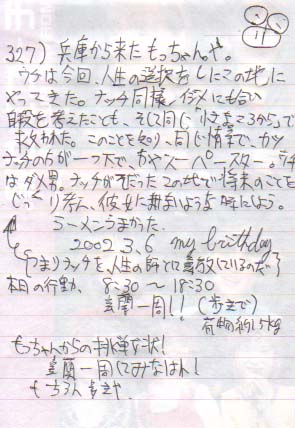 327) 兵庫から来たもっちゃんや。
ウチは今回、人生の選択をしにこの地に
やってきた。ナッチ同様イジメにも合い
自殺を考えたことも、そして同じ
救われた。このことを知り、同じ情で、かつ
ナッチの方が一つ下で、かやスーパースター。ウチ
はダメ男。ナッチがそだったこの地で将来のことを
じっくり考え、彼女に無言うような時にしよう。
ラーメンうまかった。
2002.3.6 my birthday
つまりナッチを人生の師として尊敬しているのだ。
本日の行動、8:30〜18:30
室蘭一周!! (歩きで)
荷物約15kg
もっちゃんからの挑戦状!
室蘭一周してみなはれ!
もちろん歩きや